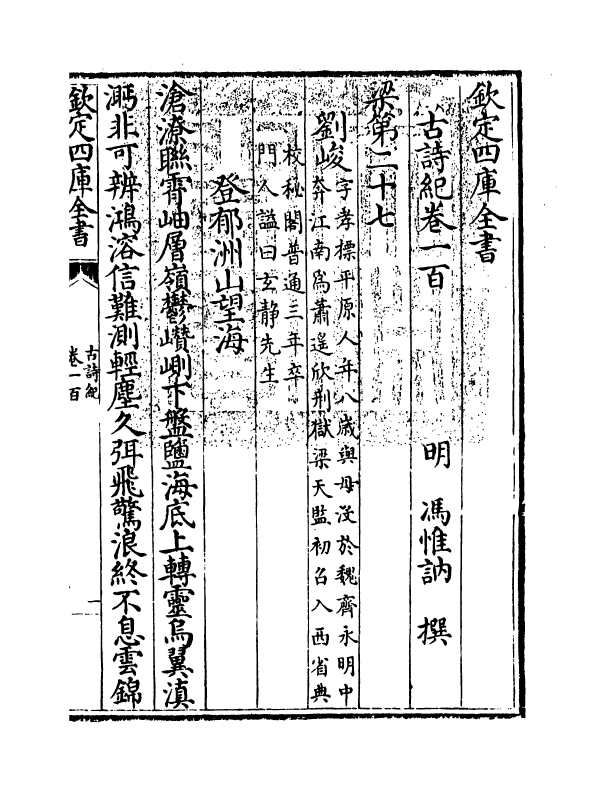 欽定四庫全書
古詩紀卷一百　明　馮惟訥　撰
梁第二十七
劉峻　字孝標平原人年八歲與母没於魏齊永明中
奔江南為蕭遥欣刑獄梁天監初召入西省典
校秘閣普通三年卒
門人諡曰玄静先生
登郁洲山望海
滄潦聯霄岫層嶺鬱巑㠂下盤鹽海底上轉靈烏翼滇
㴐非可辨鴻溶信難測輕塵久弭飛驚浪終不息雲錦
欽定四庫全書
古詩紀
卷一百
一